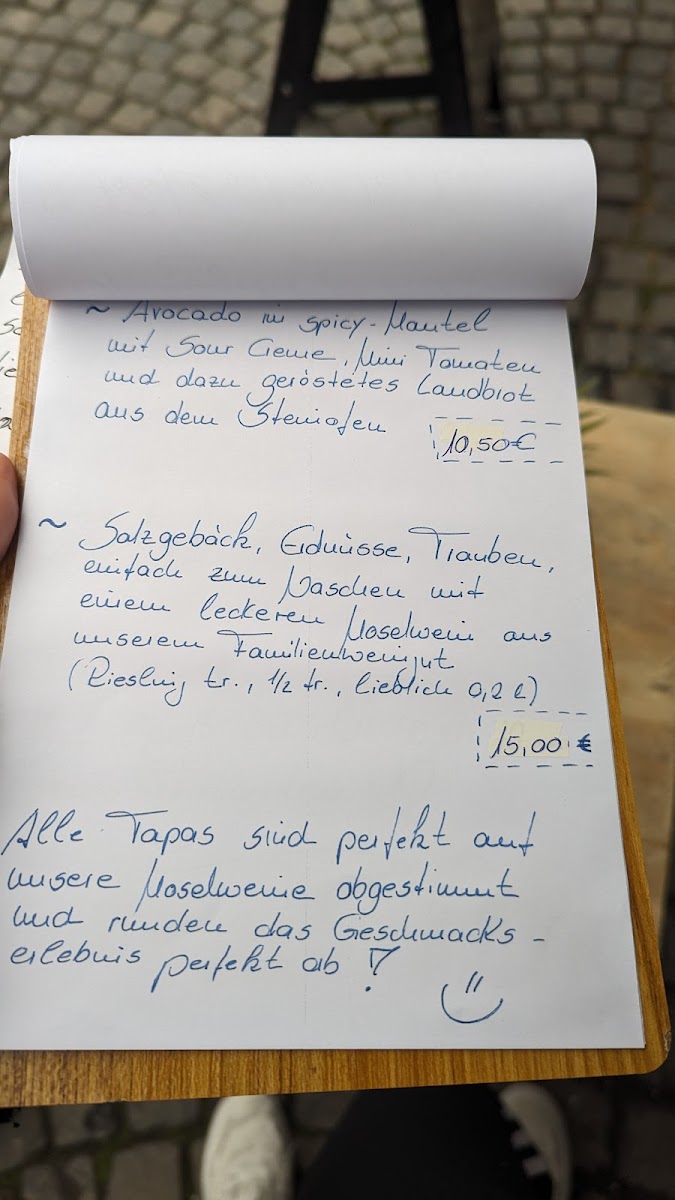 ~ Avocado in spicy-Mantel
mit Sour Creme, Mini Tomaten
und dazu geröstetes Landbrot
aus dem Steinofen
10,50€
~ Salzgebäck, Erdnüsse, Trauben,
einfach zum Naschen mit
einem leckeren Moselwein aus
unserem Familienweingut
(Riesling tr., 1/2 tr., lieblich 0,2 l)
15,00 €
Alle Tapas sind perfekt auf
unsere Moselweine abgestimmt
und runden das Geschmacks-
erlebnis perfekt ab!